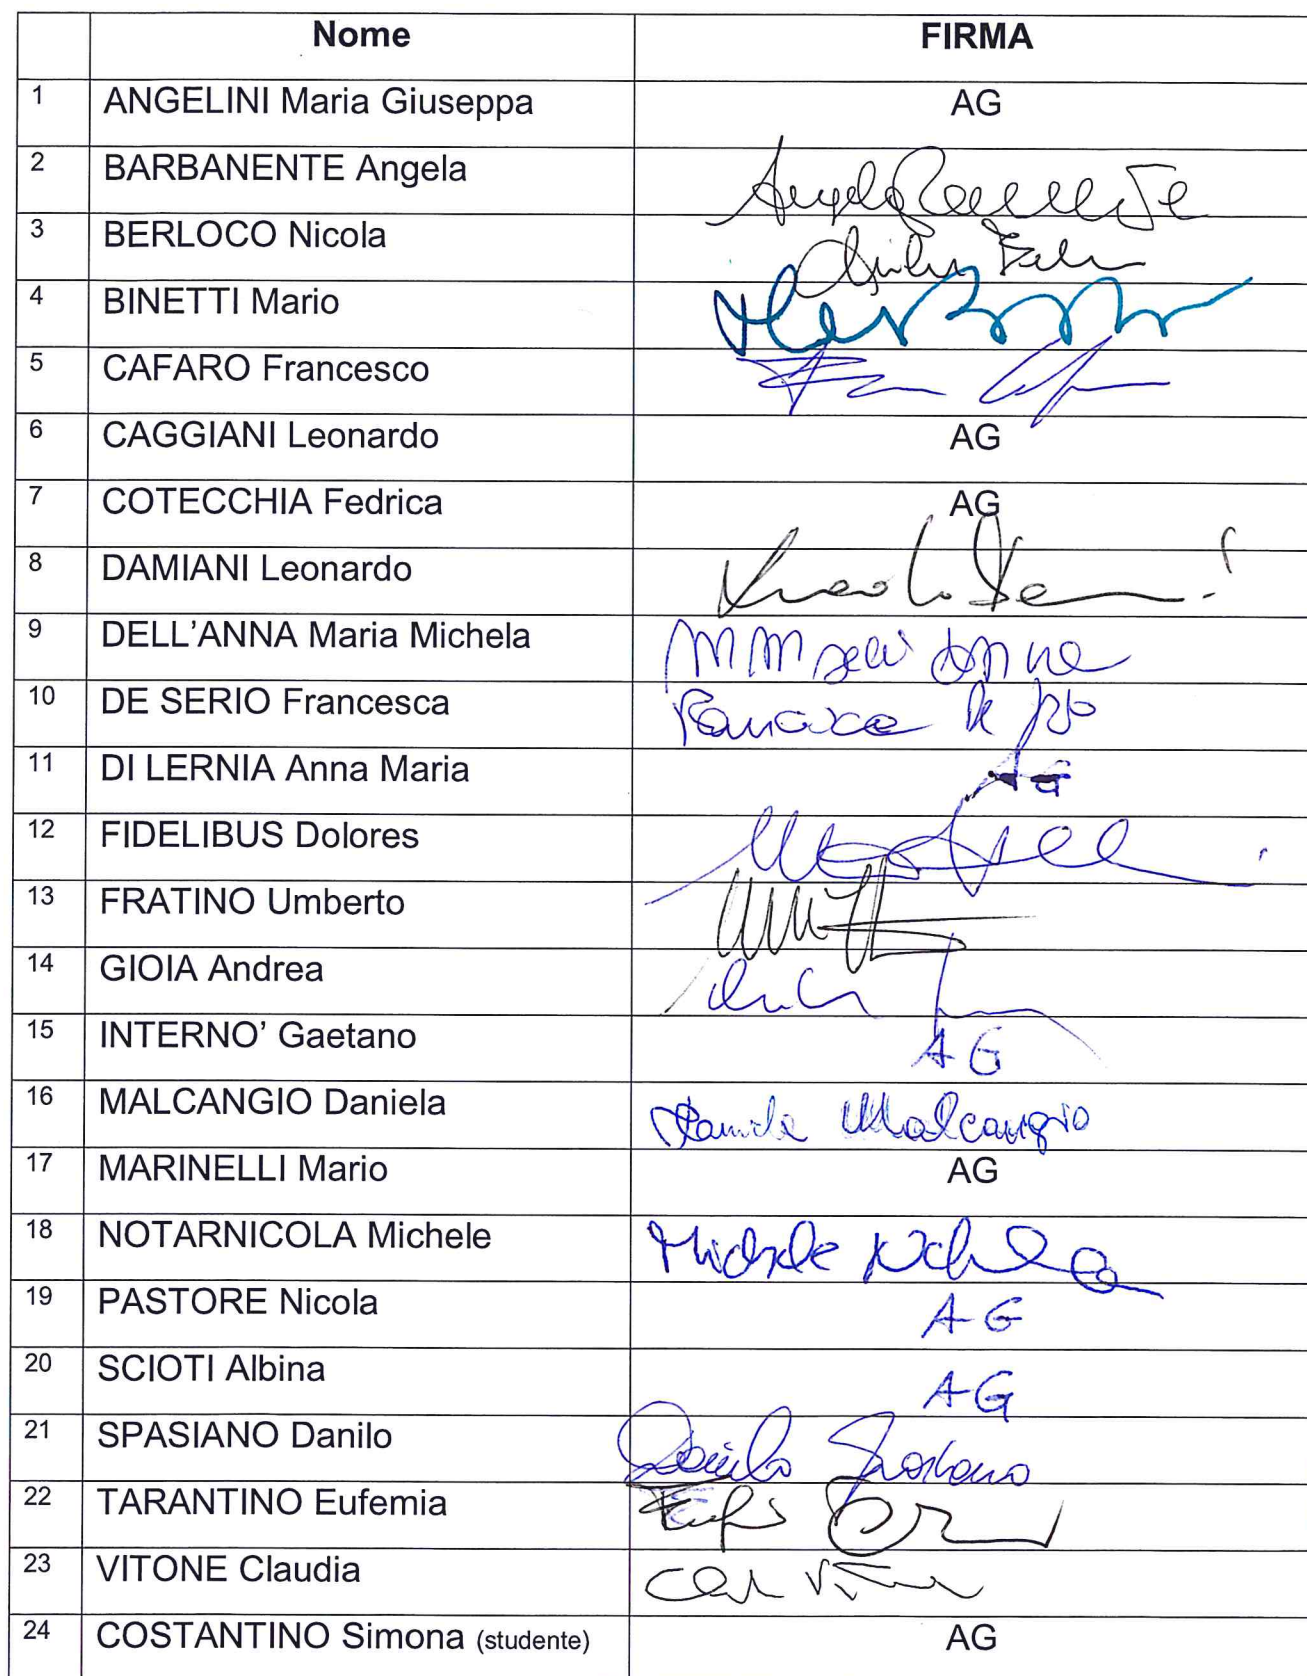 Nome FIRMA
1 ANGELINI Maria Giuseppa AG
2 BARBANENTE Angela
3 BERLOCO Nicola
4 BINETTI Mario
5 CAFARO Francesco
6 CAGGIANI Leonardo AG
7 COTECCHIA Fedrica AG
8 DAMIANI Leonardo
9 DELL'ANNA Maria Michela
10 DE SERIO Francesca
11 DI LERNIA Anna Maria AG
12 FIDELIBUS Dolores
13 FRATINO Umberto
14 GIOIA Andrea
15 INTERNO' Gaetano AG
16 MALCANGIO Daniela Daniela Malcangio
17 MARINELLI Mario AG
18 NOTARNICOLA Michele Michele
19 PASTORE Nicola AG
20 SCIOTI Albina AG
21 SPASIANO Danilo Danilo Spasiano
22 TARANTINO Eufemia
23 VITONE Claudia
24 COSTANTINO Simona (studente) AG